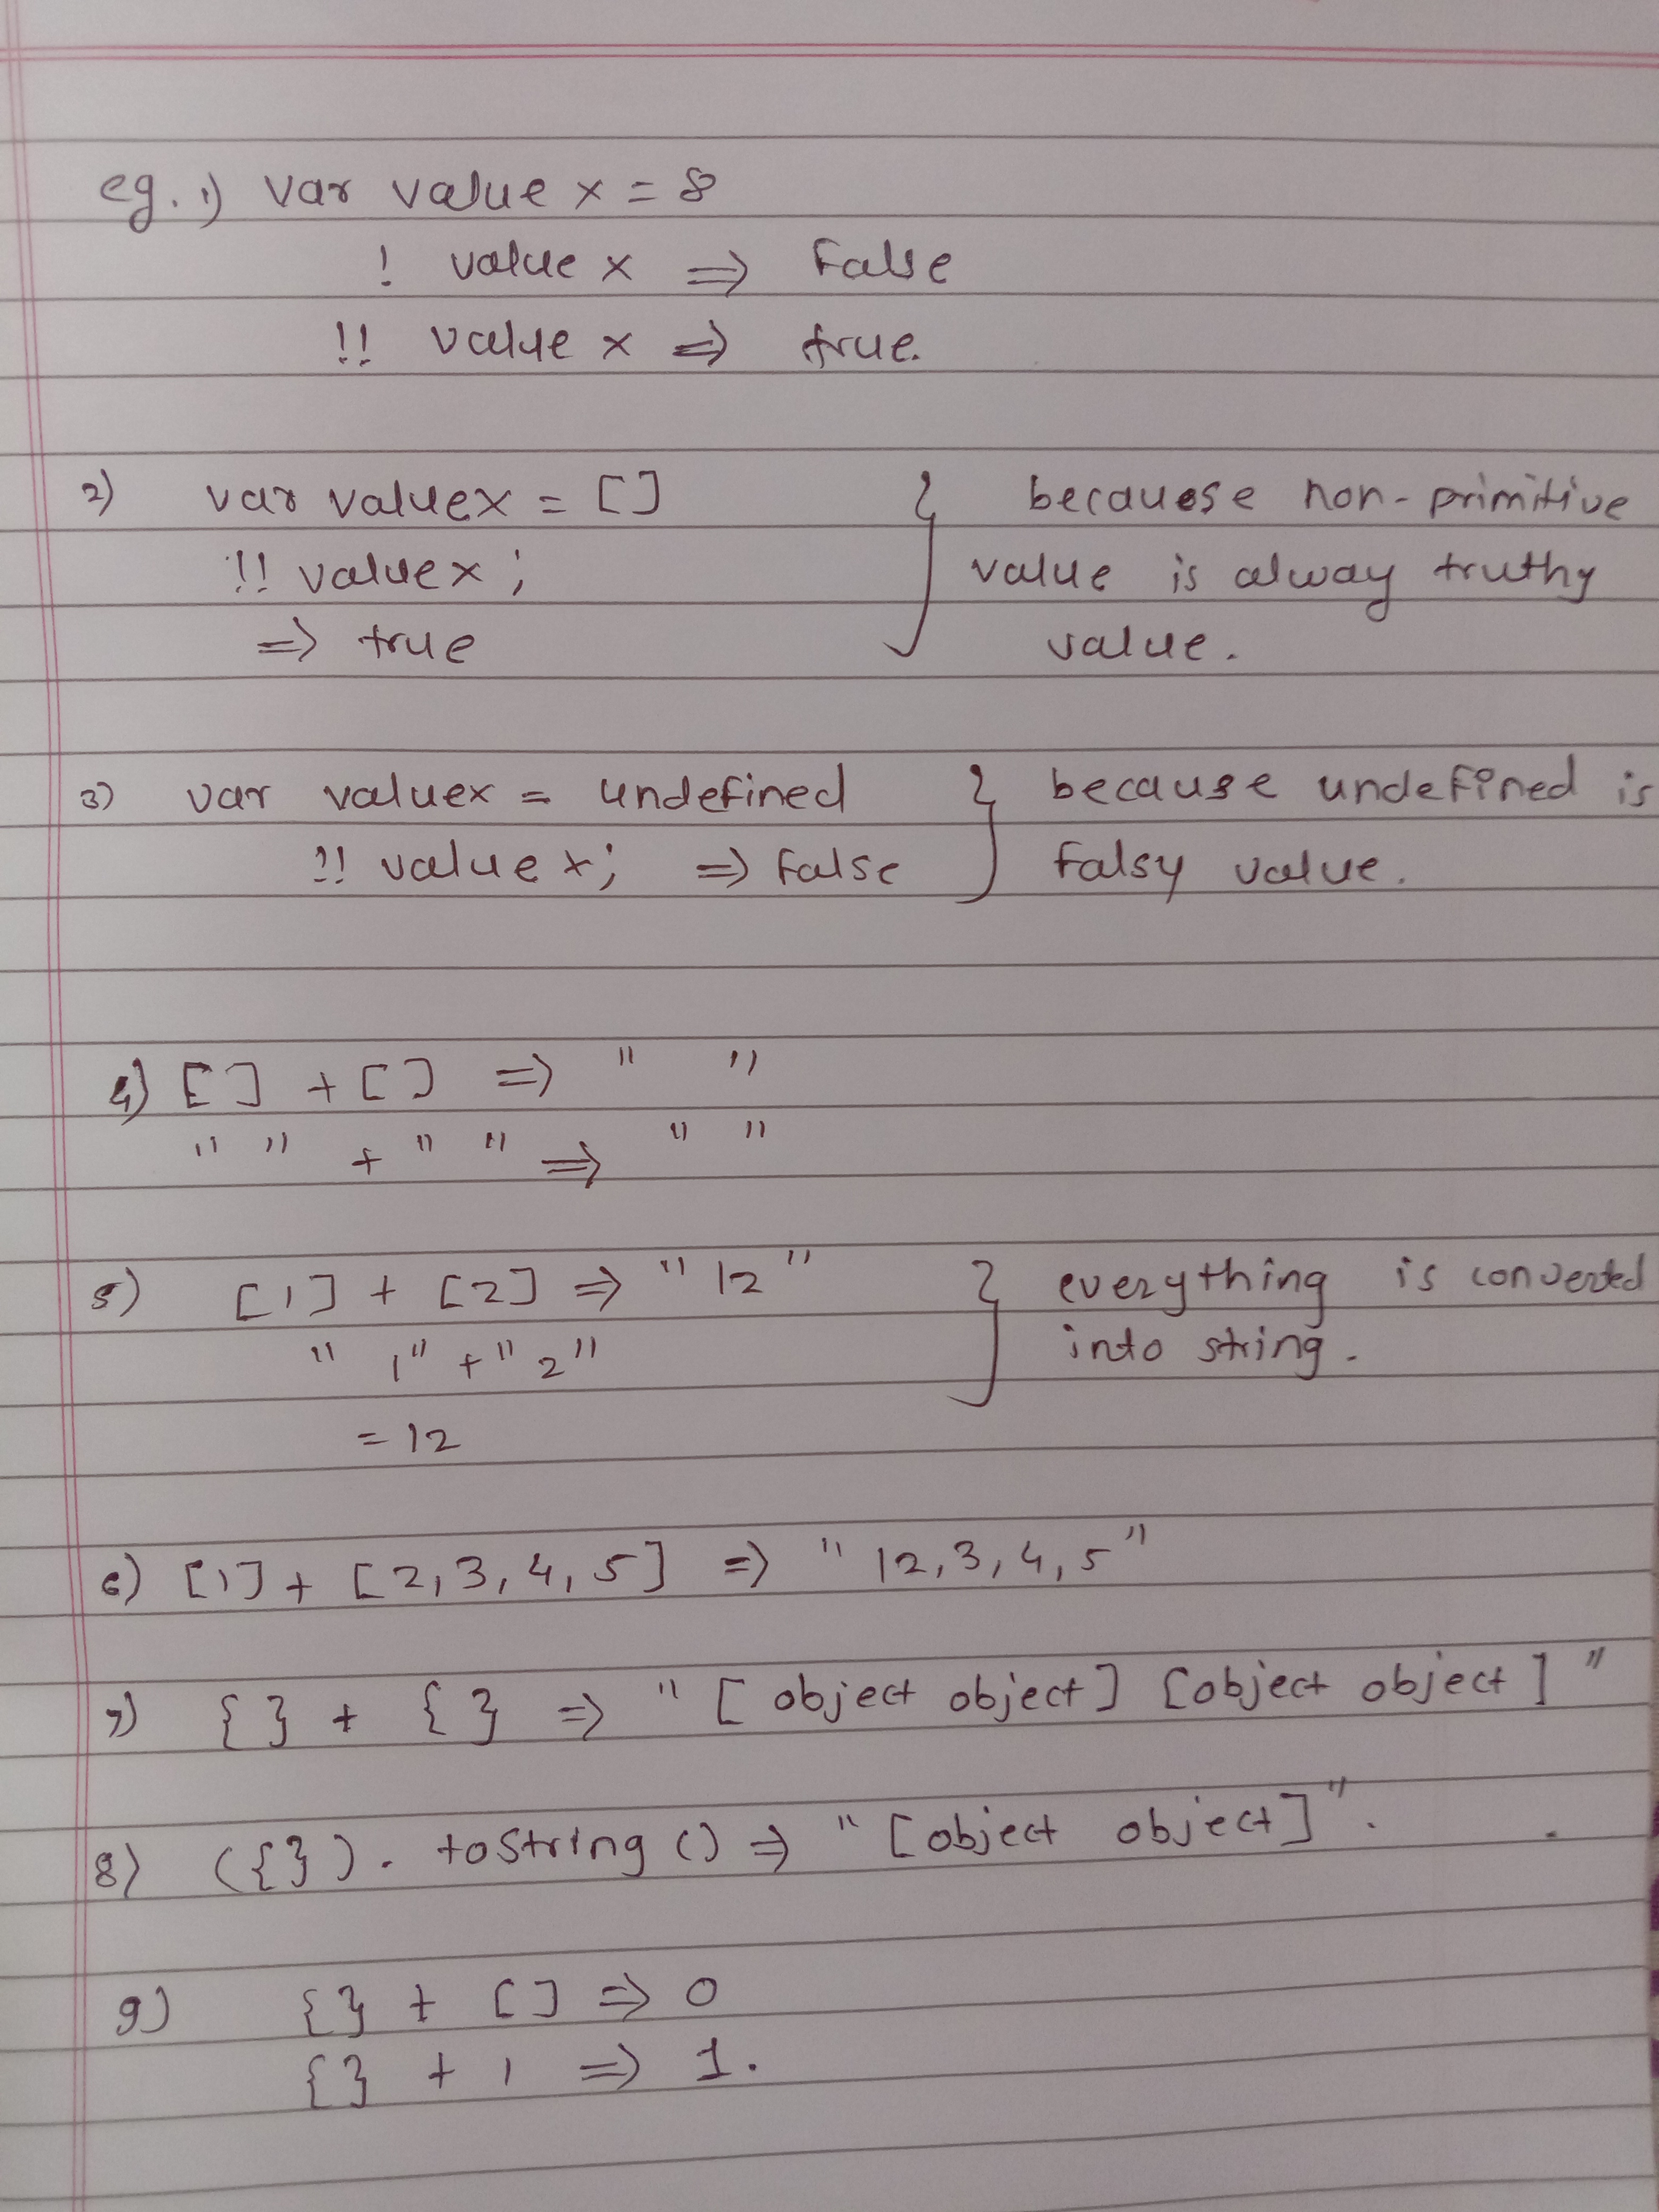 eg. 1) var value x = 8
! value x => False
!! value x => true.
2) var valuex = [] } becauese non-primitive
!! valuex ; value is alway truthy
=> true value.
3) var valuex = undefined } because undefined is
!! value x; => False Falsy value.
4) [] + [] => " "
" " + " " => " "
5) [1] + [2] => "12" } everything is converted
"1" + "2" into string.
= 12
6) [1] + [2,3,4,5] => "12,3,4,5"
7) {} + {} => "[object object] [object object]"
8) ({}). toString () => "[object object]".
9) {} + [] => 0
{} + 1 => 1.